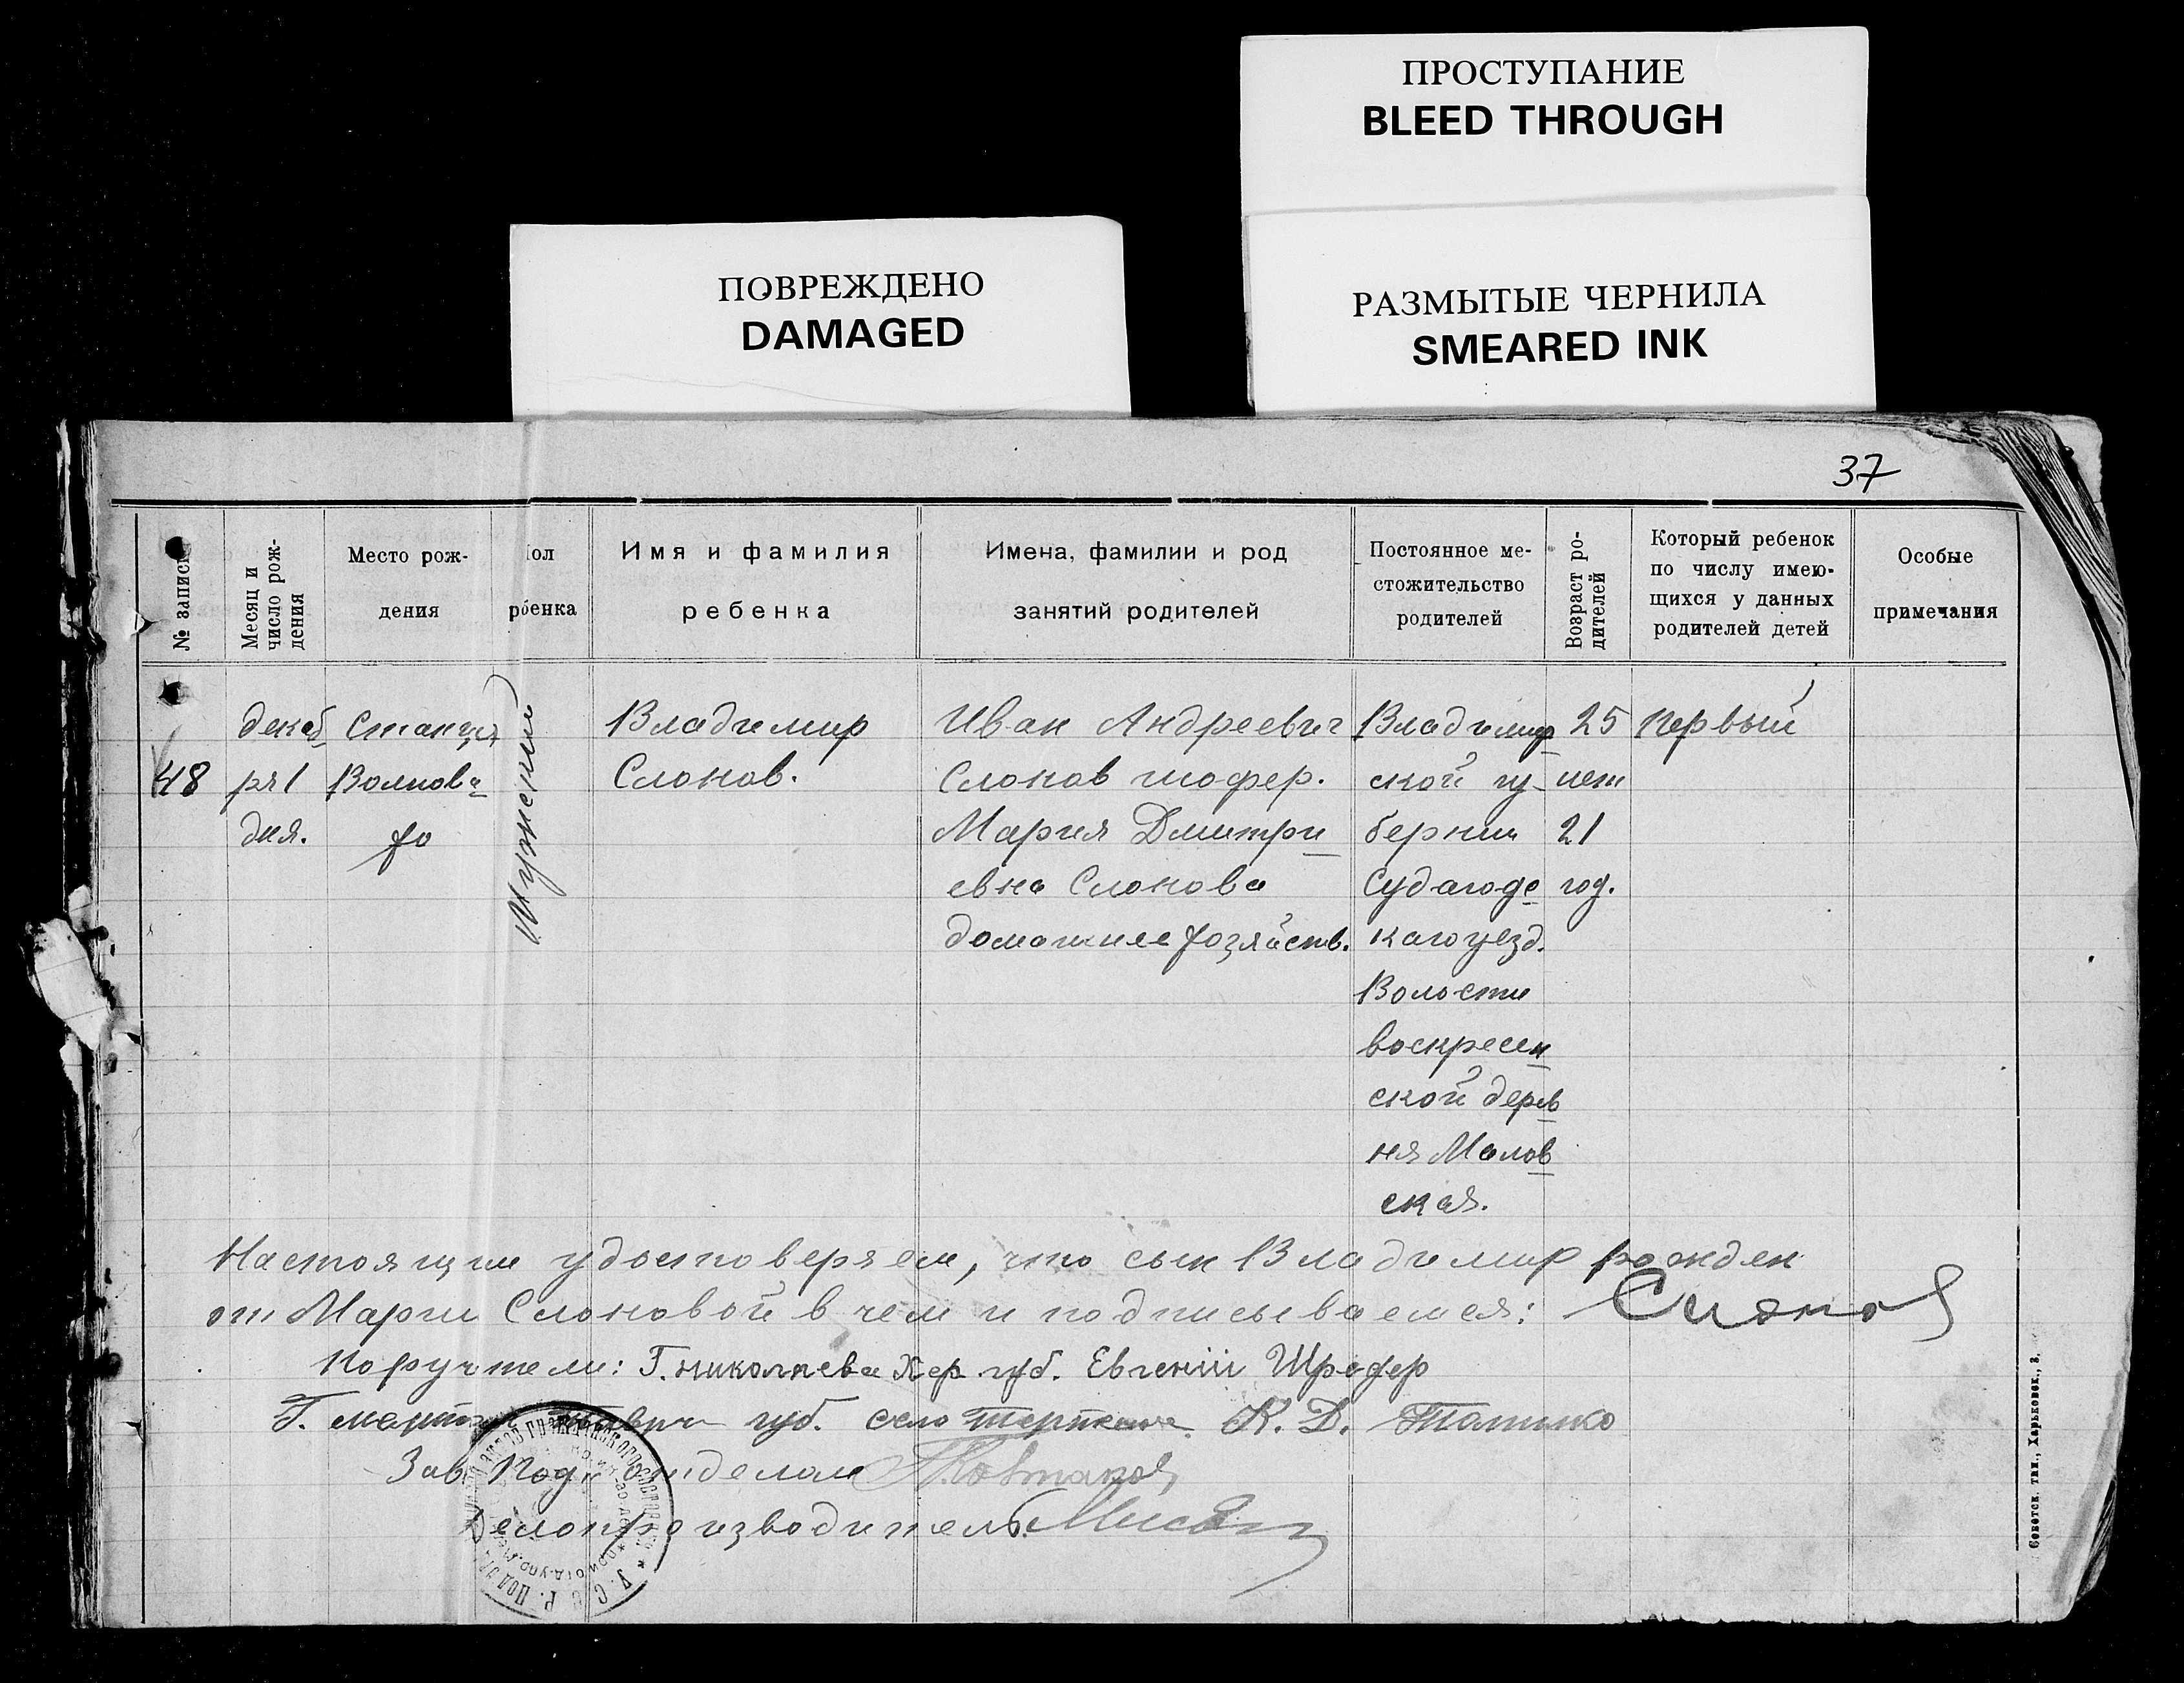 ПРОСТУПАНИЕ
BLEED THROUGH
ПОВРЕЖДЕНО
DAMAGED
РАЗМЫТЫЕ ЧЕРНИЛА
SMEARED INK
37
№ записи
Месяц и
число рож-
дения
Место рож-
дения
ол
рбенка
Имя и фамилия
ребенка
Имена, фамилии и род
занятий родителей
Постоянное ме-
стожительство
родителей
Возраст ро-
дителей
Который ребенок
по числу имею-
щихся у данных
родителей детей
Особые
примечания
48
декаб
ря 1
дня.
Станция
Волнова
хо
Мужский
Владимир
Слонов.
Иван Андреевич
Слонов шофер.
Мария Дмитри
евна Слонова
домашнее хозяйств.
Владимир
ской гу-
бернии
Судагодс
каго уезд.
Волости
воскресен
ской дерев
ня Малов
ская.
25
лет
21
год.
Первый
Настоящим удостоверяем, что сын Владимир рожден
от Марии Слоновой в чем и подписываемся: Слонов
Поручители: Г. Николаева Хер. губ. Евгений Шредер
губ. село К. Д.
Зав. Под отделом
Делопроизводитель
Советск. тип., Харьковск., 3.